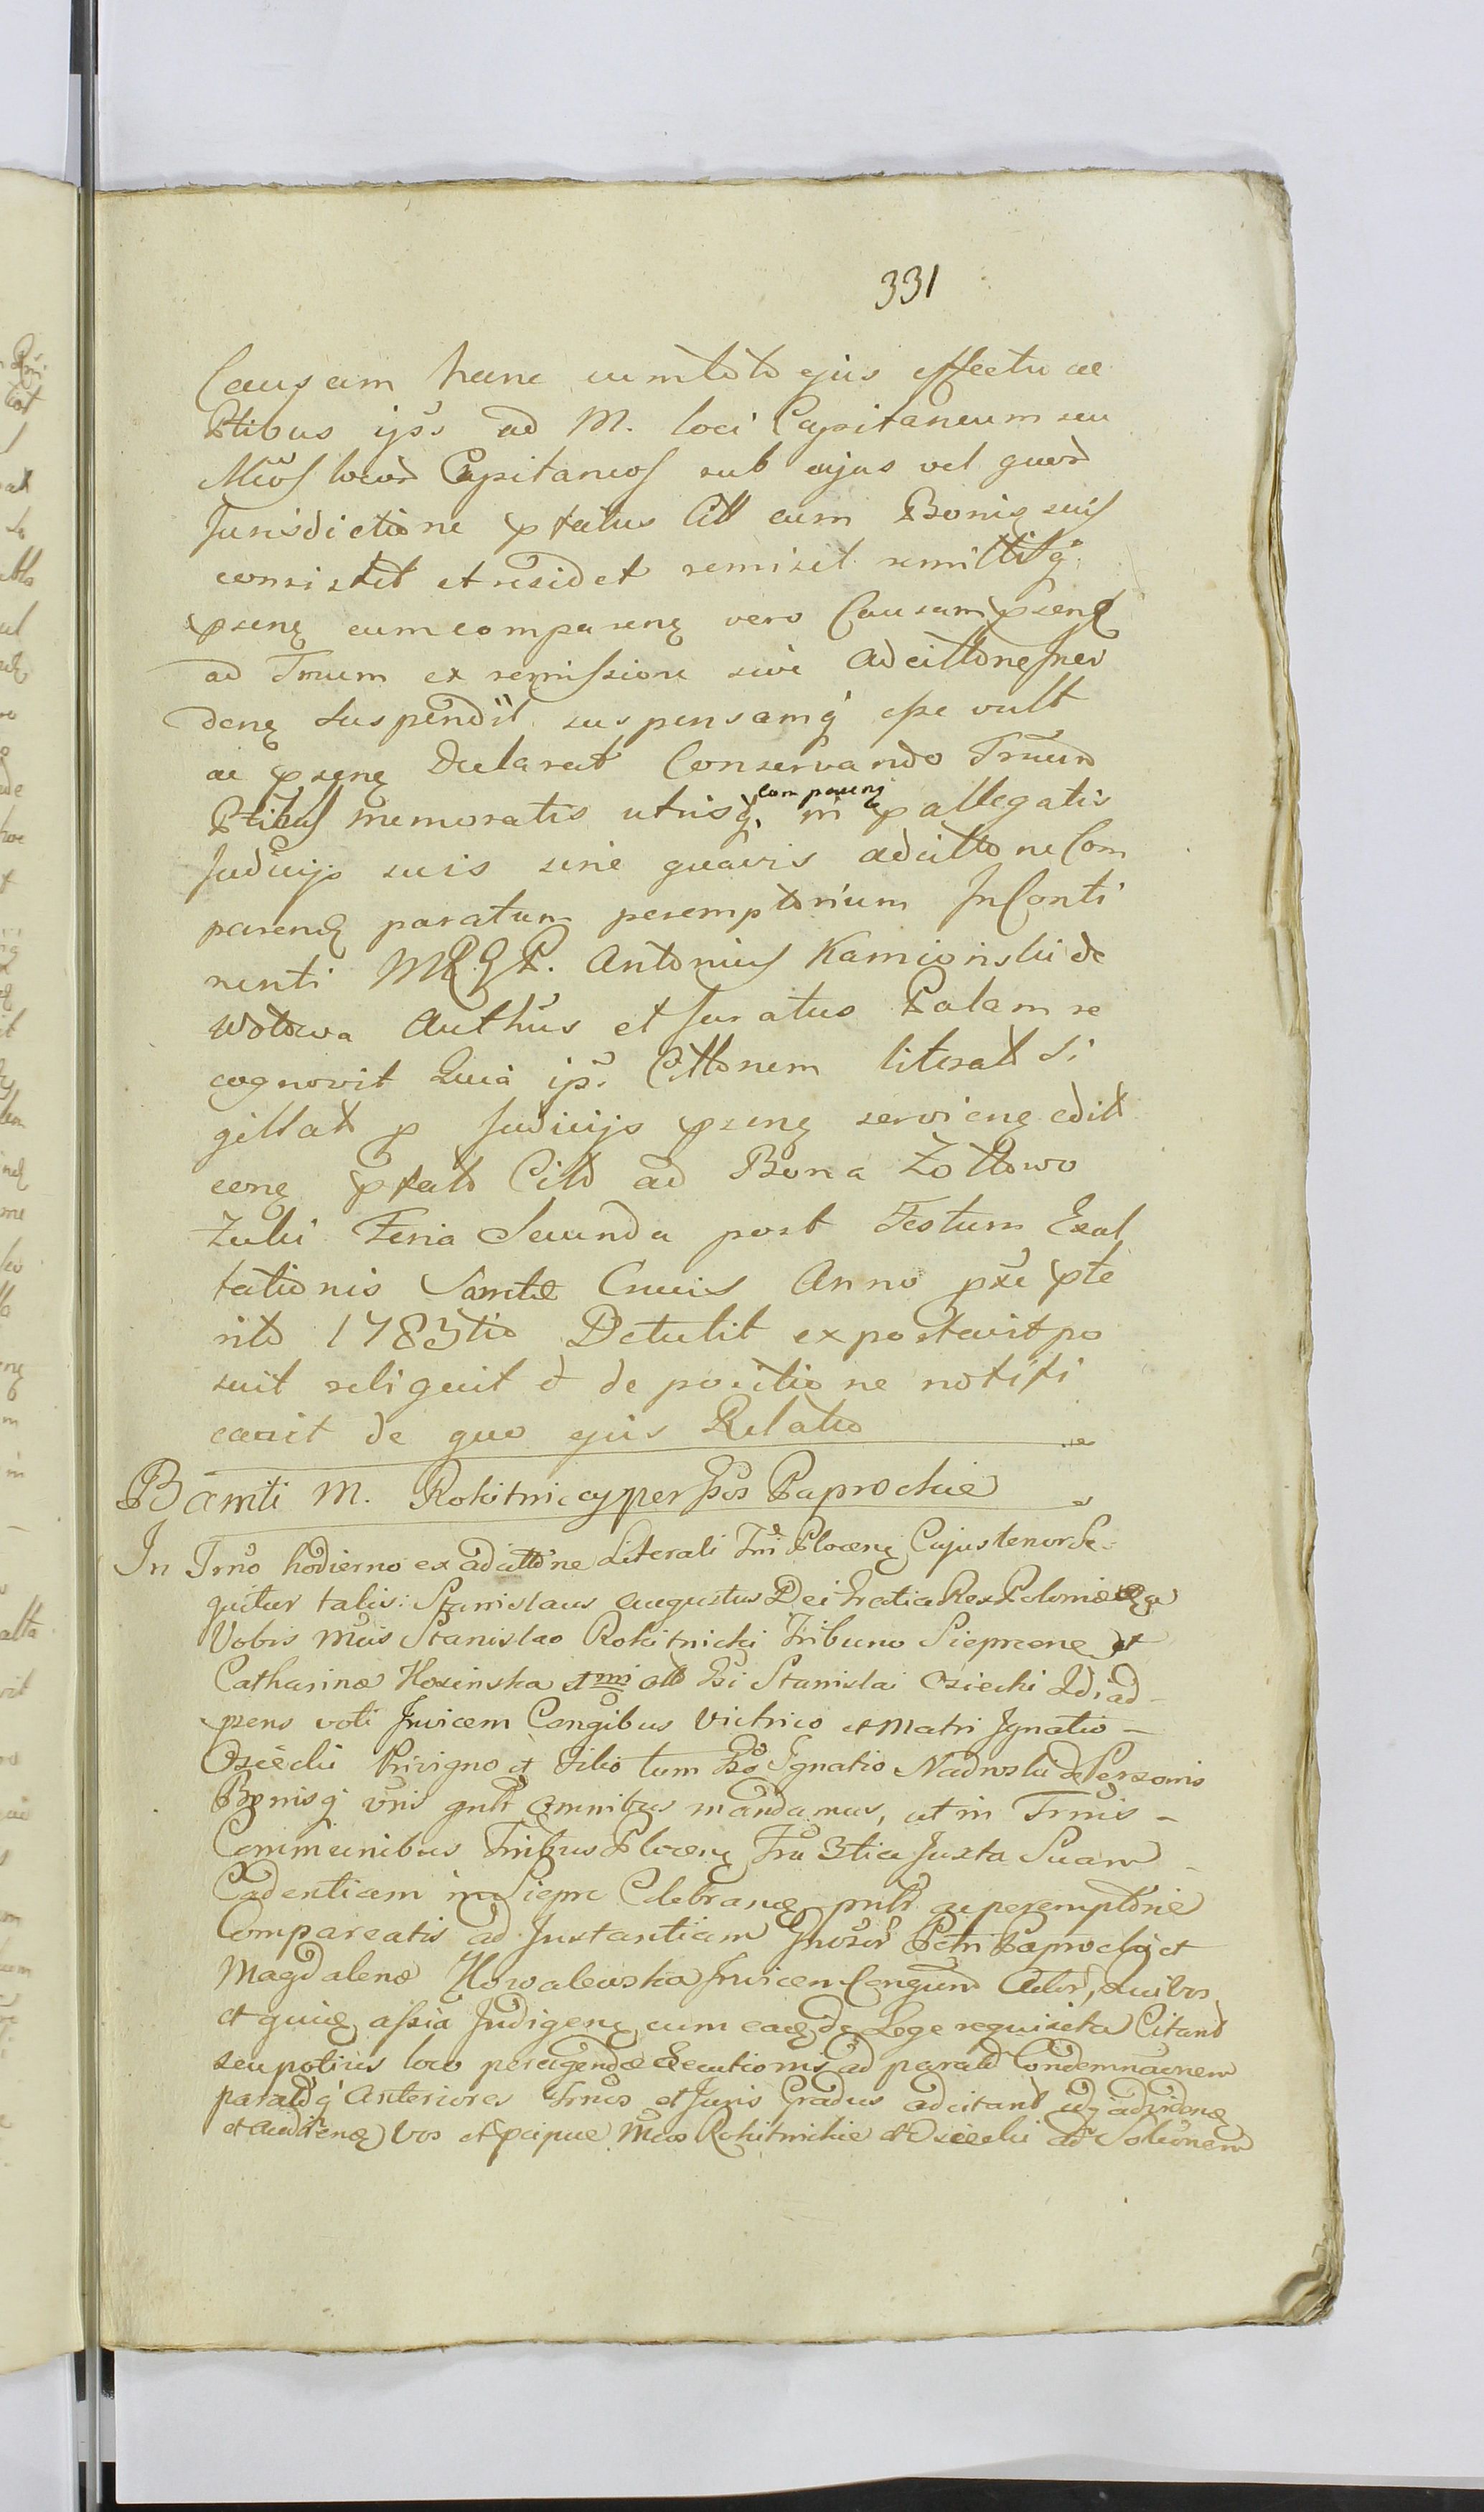 331
Causam hanc cum toto ejus effectu ac
Ptibus ips. ad M. loci Capitaneum seu
Mcos locor Capitaneos sub cujus vel quor
Jurisdictione pfatus Citt cum Bonis suis
consistit et residet remisit remittitq.
psenq eum comparenq vero Causam psenq
ad Tnum ex remissione sive adcittone
denq suspendit suspensamq esse vult
ac psenq Declarat Conservando Trnum
Ptibus memoratis utrisq. comparenq in pallegatis
Judicijs suis sine quavis adcittone Com
parenq paratum peremptorium InConti
nenti MRGP. Antonius Kamionski de
Wotowa Authus et Juratus Palam re
cognovit Quia ips. Cittonem literat Si
gillat p Judicijs psenq servienq edit
conq pfato Citto ad Bona Zottowo
Zulki Feria Secunda post Festum Exal
tationis Sanctæ Crucis Anno pxe pte
rito 1783tio Detulit exportavit po
suit reliquit et de positione notifi
cavit de quo ejus Relatio
Bamti M. Rokitniccy per Gsos Paprockie
In Trno hodierno ex adcittone Literali Tri Plocenq Cujus tenor Se-
quitur talis: Stanislaus Augustus Dei Gratia Rex Poloniæ
Vobis Mcis Stanislao Rokitnicki Tribuno Sieprcenq et
Catharinæ Kosinska et mi olt Gsi Stanislai Osiecki 2di ad-
psens voti Invicem Congibus Victrico et Matri Ignatio -
Osiecki Privigno et Filio tum Gso Ignatio Nadroski de Personis
Bonisq vris gnlr omnibus mandamus, ut in Trnis -
Communibus Tribus Plocenq Fru 3tia Juxta Suam -
Cadentiam in Sieprc Celebranq pnlr ac peremptorie
Compareatis ad Instantiam Gnosor Petri Paprocki et
Magdalenæ Kowalewska Invicem Congum Actor, Qui vos
et quiq assia Indigenq cum eadq de Lege requisita Citant
seu potius loco peragendæ Executionis ad parata Condemnaonem
parataq Anteriores Trnos et Juris Gradus adcitant idq advidenq
et Audienq) Vos et pcipue Mcos Rokitnickie et Osiecki ad Solionem